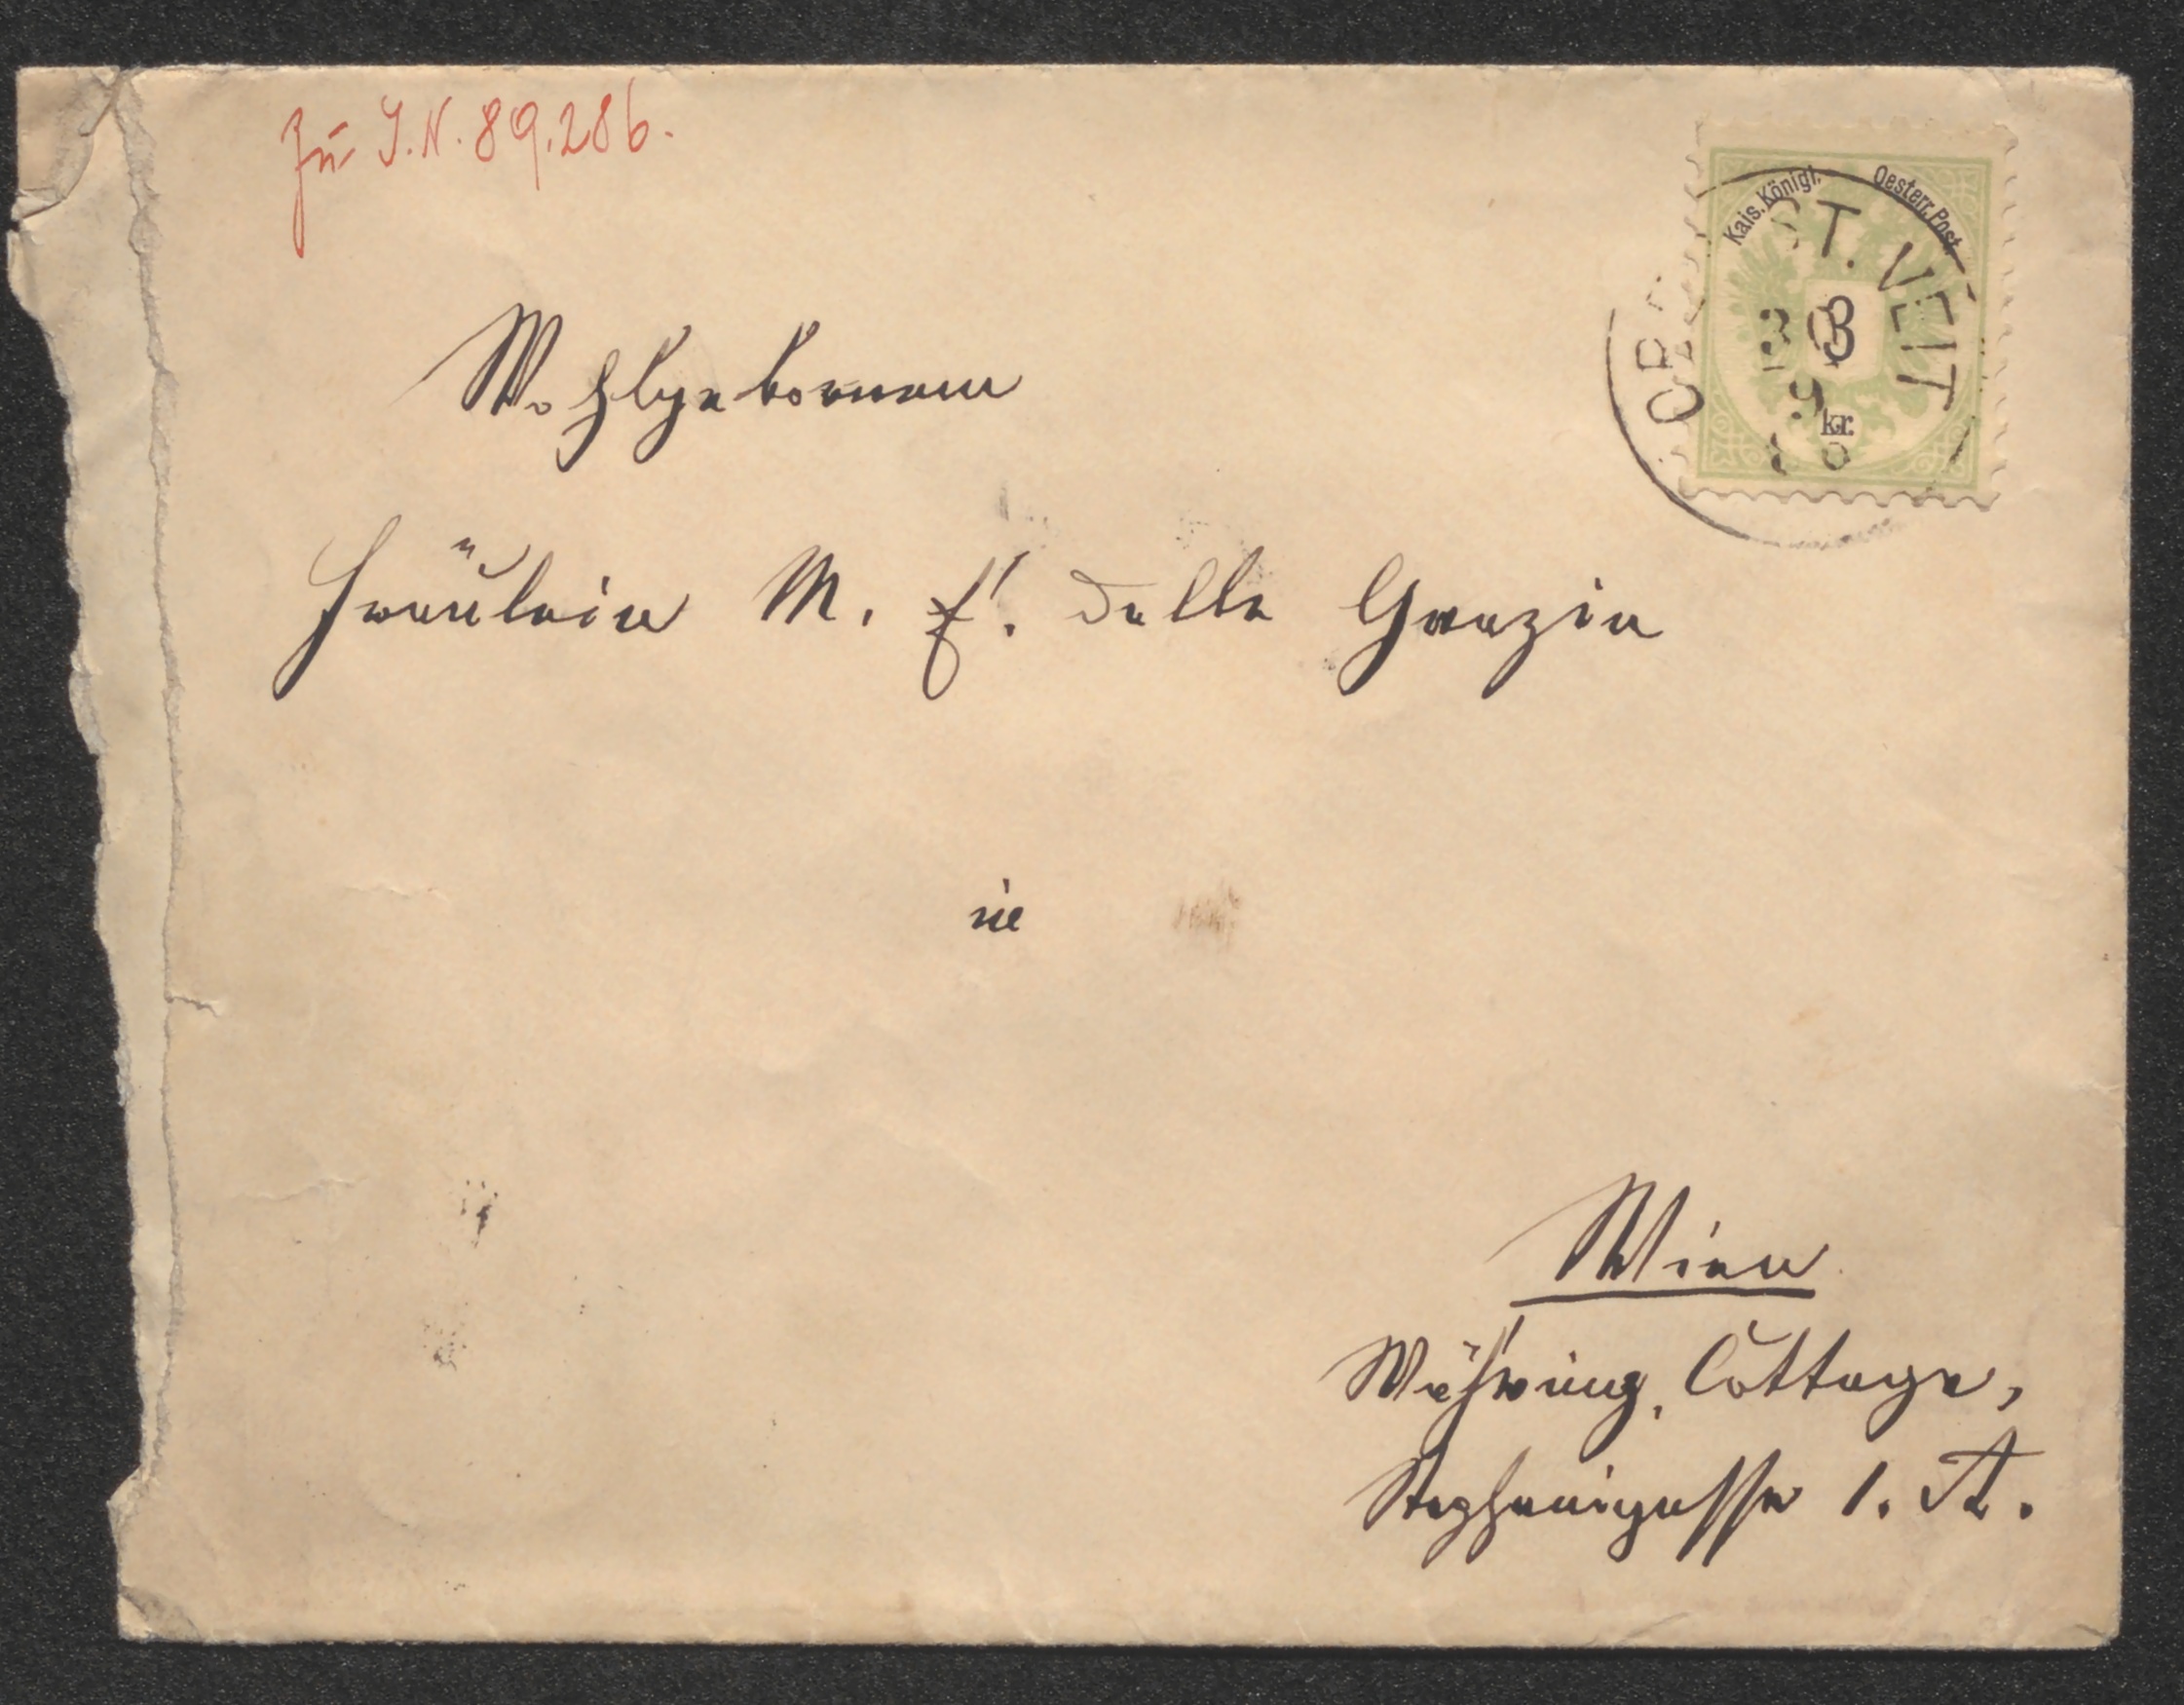 Zu I.N. 89.286.
Kais. Königl. Oesterr. Post
3
kr.
ST. VEIT
Wohlgebornem
Fräulein M. E. delle Grazie
in
Wien
Währing, Cottage,
Stephaniegasse 1. A.